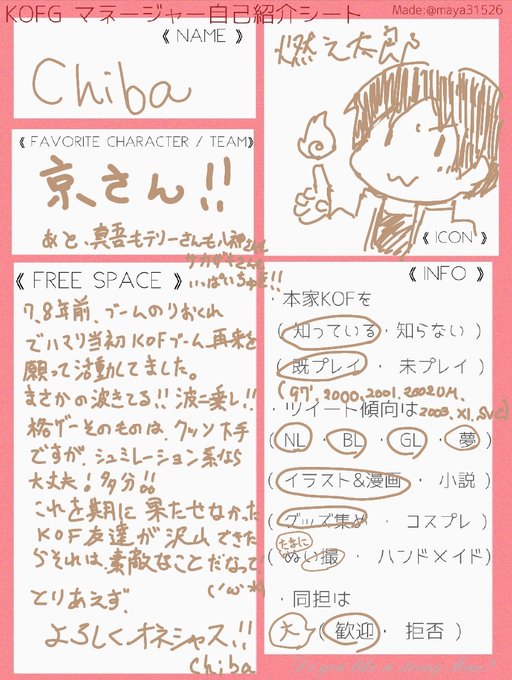 KOFG マネージャー自己紹介シート
Made:@maya31526
《 NAME 》
Chiba
《 FAVORITE CHARACTER / TEAM》
京さん!!
あと、真吾もテリーさんも八神さんも
いっぱいちゅき!!
燃え太郎
《 ICON 》
《 FREE SPACE 》
7、8年前、ブームのりおくれ
でハマり当初KOFブーム再来を
願って活動してました。
まさかの波きてる!!波に乗し!!
格ゲーそのものは、クッソ下手
ですが、シュミレーション系なら
大丈夫!多分!!
これを期に果たせなかった
KOF友達が沢山できた
らそれは、素敵なことだなって
(・'ω'・*)
とりあえず、
よろしくオネシャス!!
Chiba
《 INFO 》
・本家KOFを
( 知っている ・ 知らない )
( 既プレイ ・ 未プレイ )
(97、2000、2001、2002UM、
2003、XI、SVC)
・ツイート傾向は
( NL ・ BL ・ GL ・ 夢 )
( イラスト&漫画 ・ 小説 )
( グッズ集め ・ コスプレ )
たまに
( ぬい撮 ・ ハンドメイド )
・同担は
大 ( 歓迎 ・ 拒否 )